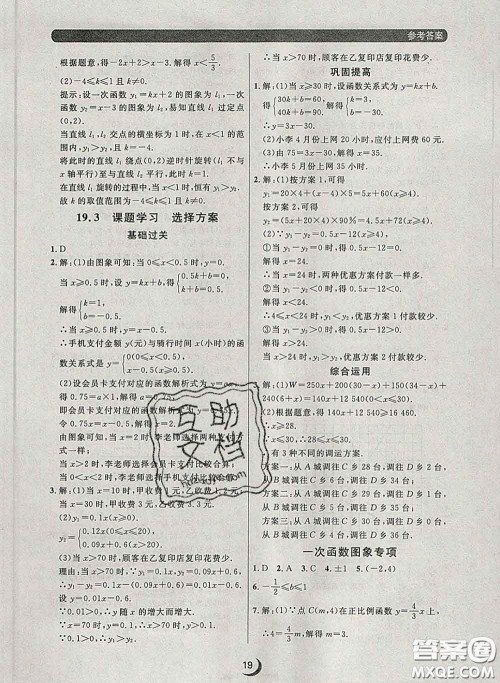 参考答案
根据题意,得-2+2>x-3.解得 x<5/3.
(2)-4≤k≤1 且 k≠0.
提示:设一次函数 y₁=kx+2 的图象为直线 l₁,
y₂=x-3 的图象为 l₂,易知函数 l₁ 过定点
(0,2).
当直线 l₁,l₂ 交点的横坐标为 1 时,
将此时的直线 l₁ 绕点(0,2)逆时针旋转(不与 x
轴平行)至与直线 l₂ 平行的位置.
直线 l₁ 旋转的过程中,当 x<1 时,恒有 y₁>y₂.
故 k 的取值范围为-4≤k≤1 且 k≠0.
19.3 课题学习 选择方案
基础过关
1.D
2.解:(1)由图象可知:当 0≤x<0.5 时,y=0;
当 x≥0.5 时,设 y=kx+b,得{0.5k+b=0,k+b=0.5.
解得{k=1,b=-0.5.
∴当 x≥0.5 时,y=x-0.5.
∴手机支付金额 y(元)与骑行时间 x(小时)的函
数关系式是 y={0(0≤x<0.5),x-0.5(x≥0.5).
(2)设会员卡支付对应的函数解析式为 y=ax.
得 0.75=a×1.解得 a=0.75.
即会员卡支付对应的函数解析式为 y=0.75x.
令 0.75x=x-0.5.解得 x=2.
由图象可知,当 x=2 时,李老师选择两种支付方
式一样;
当 x>2 时,李老师选择会员卡支付比较合算;
当 0<x<2 时,李老师选择手机支付比较合算.
3.解:(1)当 x=10 时,甲收费 1 元,乙收费 1.2 元;
当 x=30 时,甲收费 3 元,乙收费 3.3 元.
(2)y₁=0.1x(x≥0).
y₂={0.12x(0≤x≤20),0.09x+0.6(x>20).
(3)当 x>70 时,顾客在乙复印店复印花费少.
理由:当 x>70 时,y₁=0.1x,y₂=0.09x+0.6.
∴y₁-y₂=0.1x-(0.09x+0.6)=0.01x-0.6.
设 y=0.01x-0.6.
∵0.01>0,∴y 随 x 的增大而增大.
当 x=70 时,y=0.1.
∴当 x>70 时,y>0.1.∴y₁>y₂.
∴当 x>70 时,顾客在乙复印店复印花费少.
巩固提高
1.解:(1)当 x≥30 时,设函数关系式为 y=kx+b.
得{30k+b=60,40k+b=90.解得{k=3,b=-30.
∴y=3x-30.
(2)小李 4 月份上网 20 小时,应付上网费 60 元.
(3)由 75=3x-30,得 x=35.
∴小李 5 月份上网 35 个小时.
2.解:(1)按方案 1,可得
y₁=20×4+(x-4)×5=5x+60(x≥4).
按方案 2,可得
y₂=(5x+20×4)×90%=4.5x+72(x≥4).
(2)y₁-y₂=0.5x-12(x≥4).
①当 y₁-y₂=0 时,得 0.5x-12=0.
解得 x=24.
∴当 x=24 时,两种优惠方案付款一样多.
②当 y₁-y₂<0 时,得 0.5x-12<0.
解得 x<24.
∴4≤x<24 时,y₁<y₂,优惠方案 1 付款较少.
③当 y₁-y₂>0 时,得 0.5x-12>0.
解得 x>24.
当 x>24 时,y₁>y₂,优惠方案 2 付款较少.
综合运用
解:(1)W=250x+200(30-x)+150(34-x)
+240(6+x)=140x+12 540(0≤x≤30).
(2)根据题意,得 140x+12 540≥16 460.
∴x≥28.
∵x≤30,∴28≤x≤30.
∴有 3 种不同的调运方案.
方案一:从 A 城调往 C 乡 28 台,调往 D 乡 2 台,
从 B 城调往 C 乡 6 台,调往 D 乡 34 台;
方案二:从 A 城调往 C 乡 29 台,调往 D 乡 1 台,
从 B 城调往 C 乡 5 台,调往 D 乡 35 台;
方案三:从 A 城调往 C 乡 30 台,调往 D 乡 0 台,
从 B 城调往 C 乡 4 台,调往 D 乡 36 台.
一次函数图象专项
1.D 2.C 3.C 4.±1 5.(-2,4)
6.-1/2≤b≤1
7.解:(1)∵点 C(m,4)在正比例函数 y=4/3x
∴4=4/3m,解得 m=3.
19
百助文档
答案圈
MXQE.COM